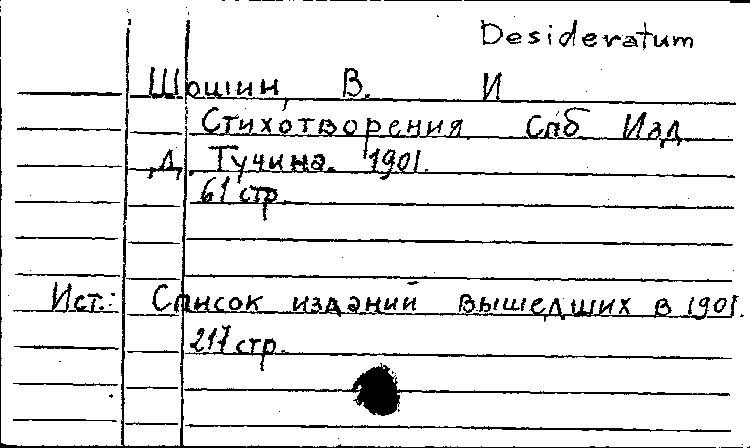 Desideratum
Шошин, В. И
Стихотворения Спб Изд.
Д. Тучина. 1901.
61 стр.
Ист.: Список изданий вышедших в 1901.
217 стр.